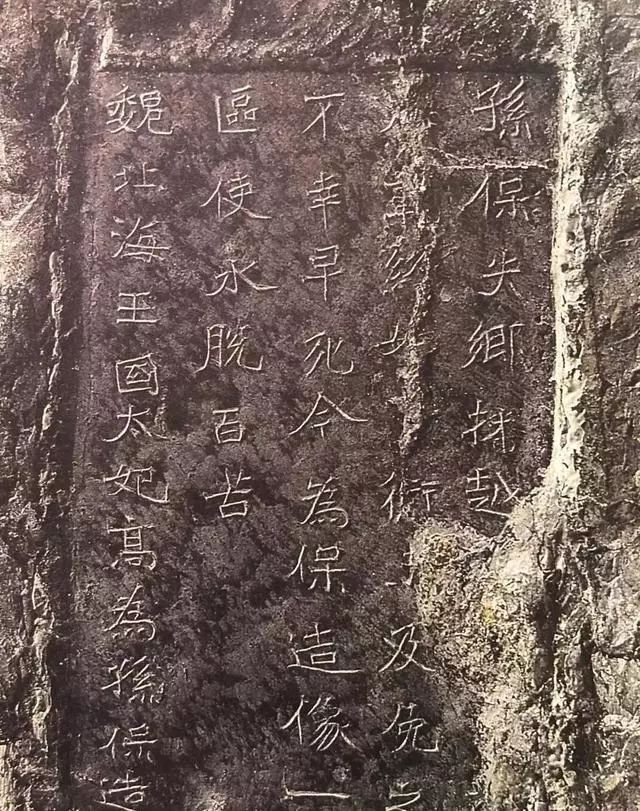 孫保失鄉拔越
衍及免
不幸早死今為保造像一
區使永脫百苦
魏北海王國太妃高為孫保造